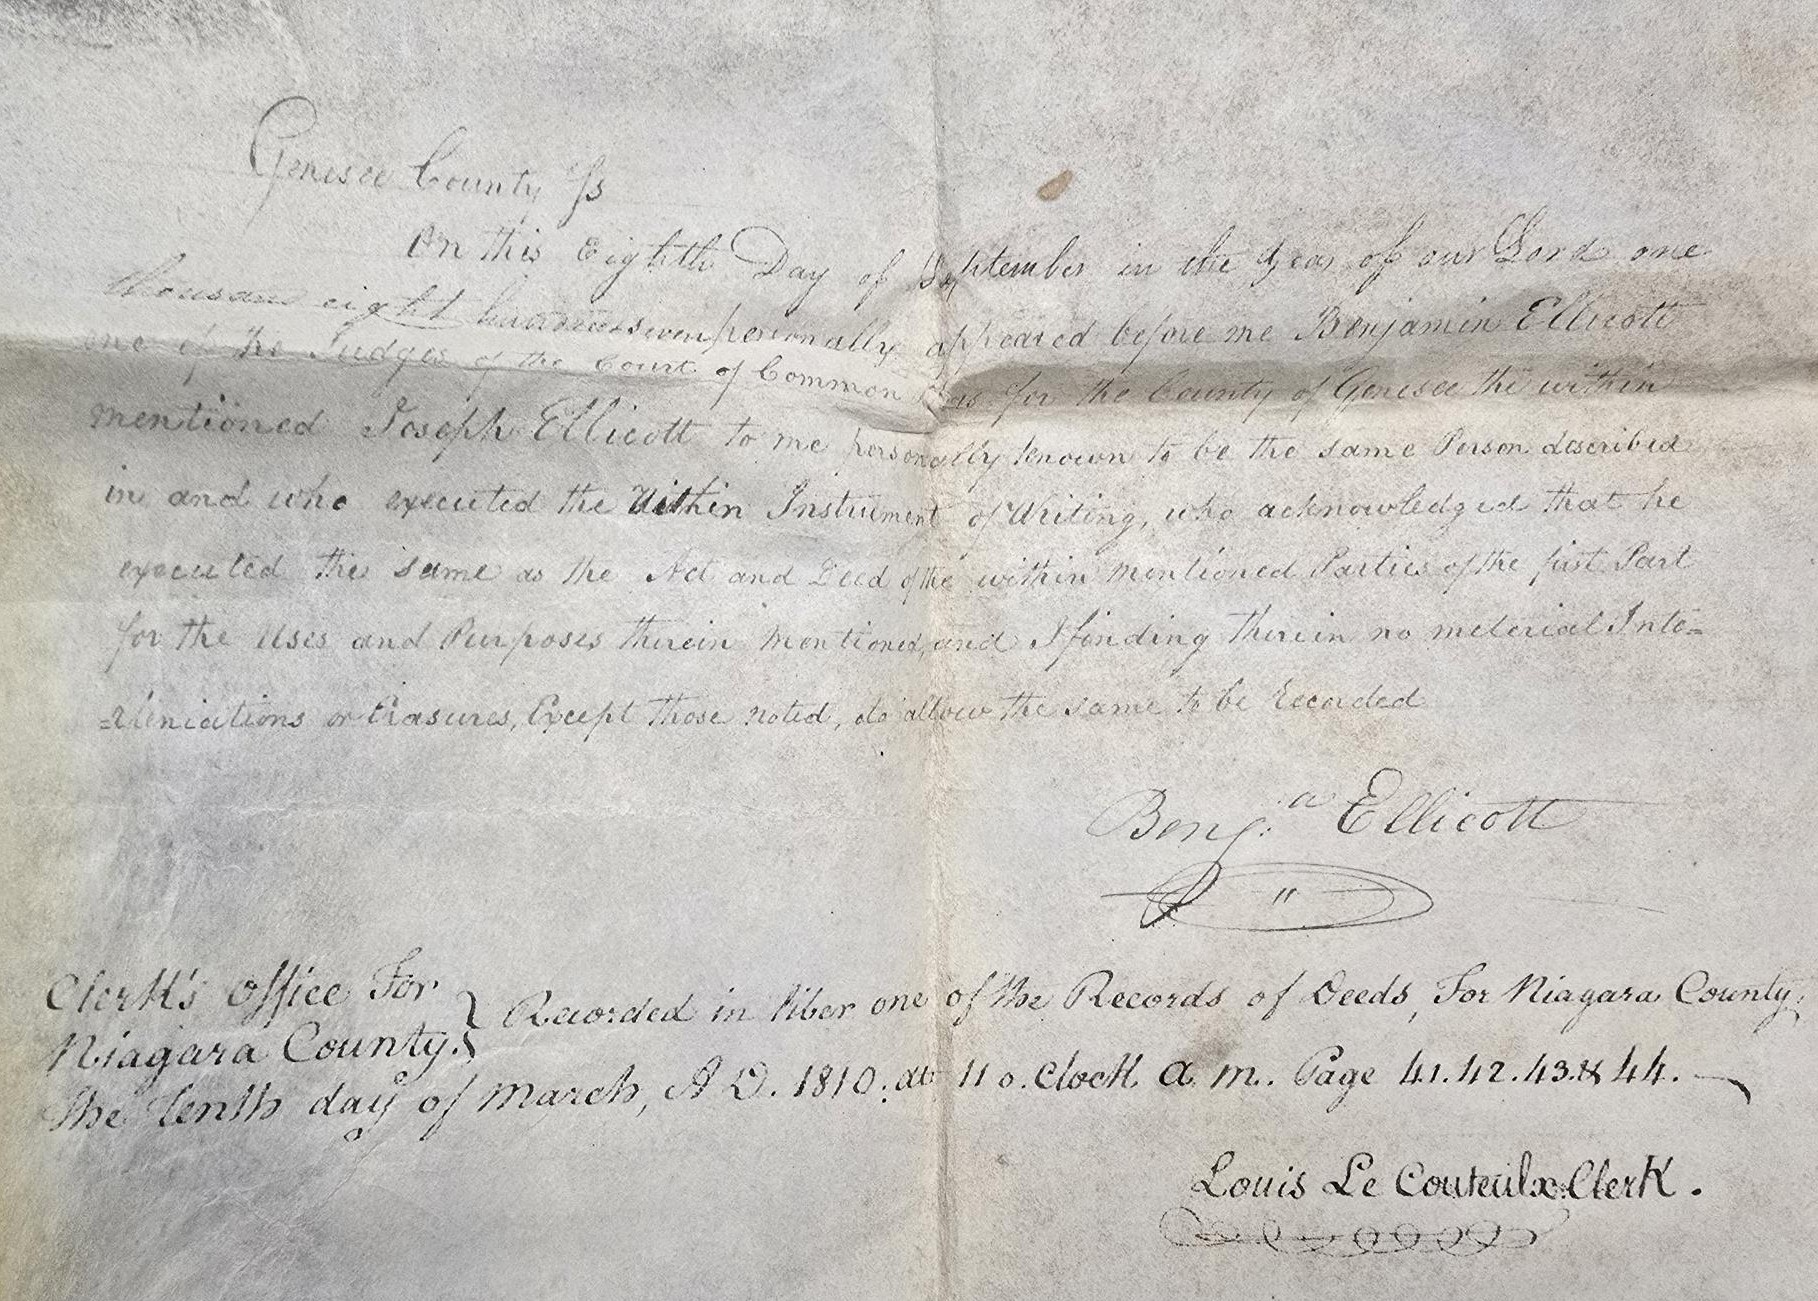 Genesee County Ss
On this Eighth Day of September in the Year of our Lord one
thousand eight hundred & seven personally appeared before me Benjamin Ellicott
one of the Judges of the Court of Common Pleas for the County of Genesee the within
mentioned Joseph Ellicott to me personally known to be the same Person described
in and who executed the Within Instrument of Writing, who acknowledged that he
executed the same as the Act and Deed of the within mentioned Parties of the first Part
for the Uses and Purposes therein Mentioned, and I finding therein no meterial Inte=
=rleniations or Erasures, Except those noted, do allow the same to be Recorded
Benj.a Ellicott
Clerk's office For
Niagara County.
} Recorded in liber one of the Records of Deeds, For Niagara County,
the tenth day of March, A D. 1810. at 11 o. Clock a m. Page 41.42.43.& 44.
Louis Le Couteulx Clerk.